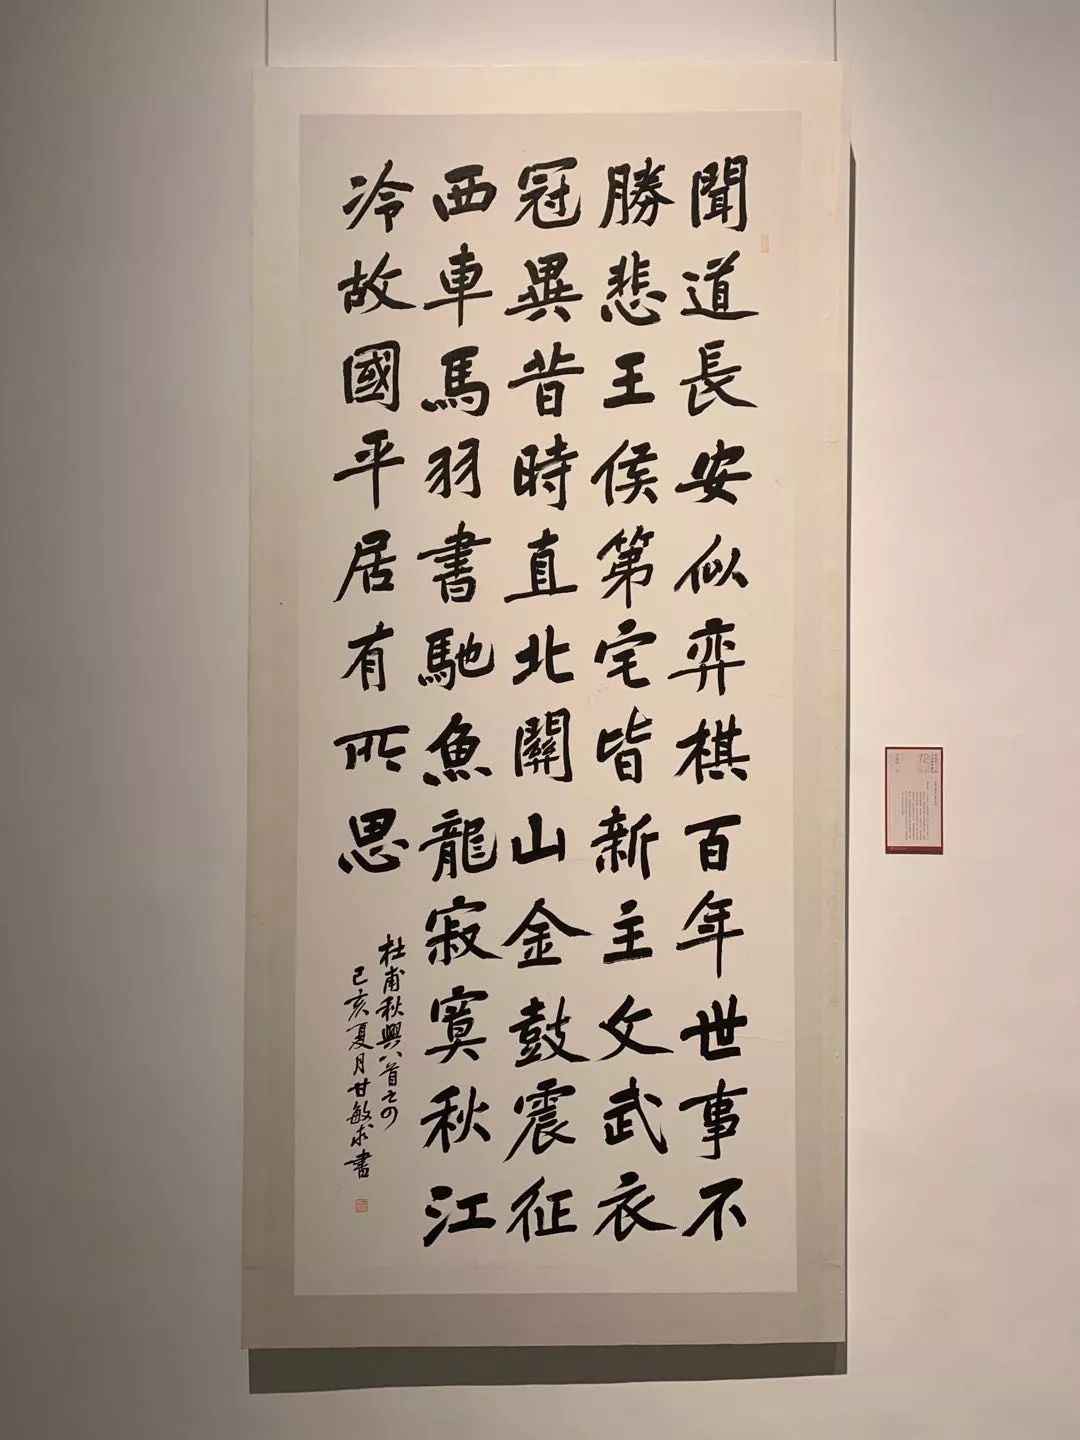 聞道長安似弈棋百年世事不
勝悲王侯第宅皆新主文武衣
冠異昔時直北關山金鼓震征
西車馬羽書馳魚龍寂寞秋江
冷故國平居有所思
杜甫秋興八首之四
己亥夏月甘敏求書